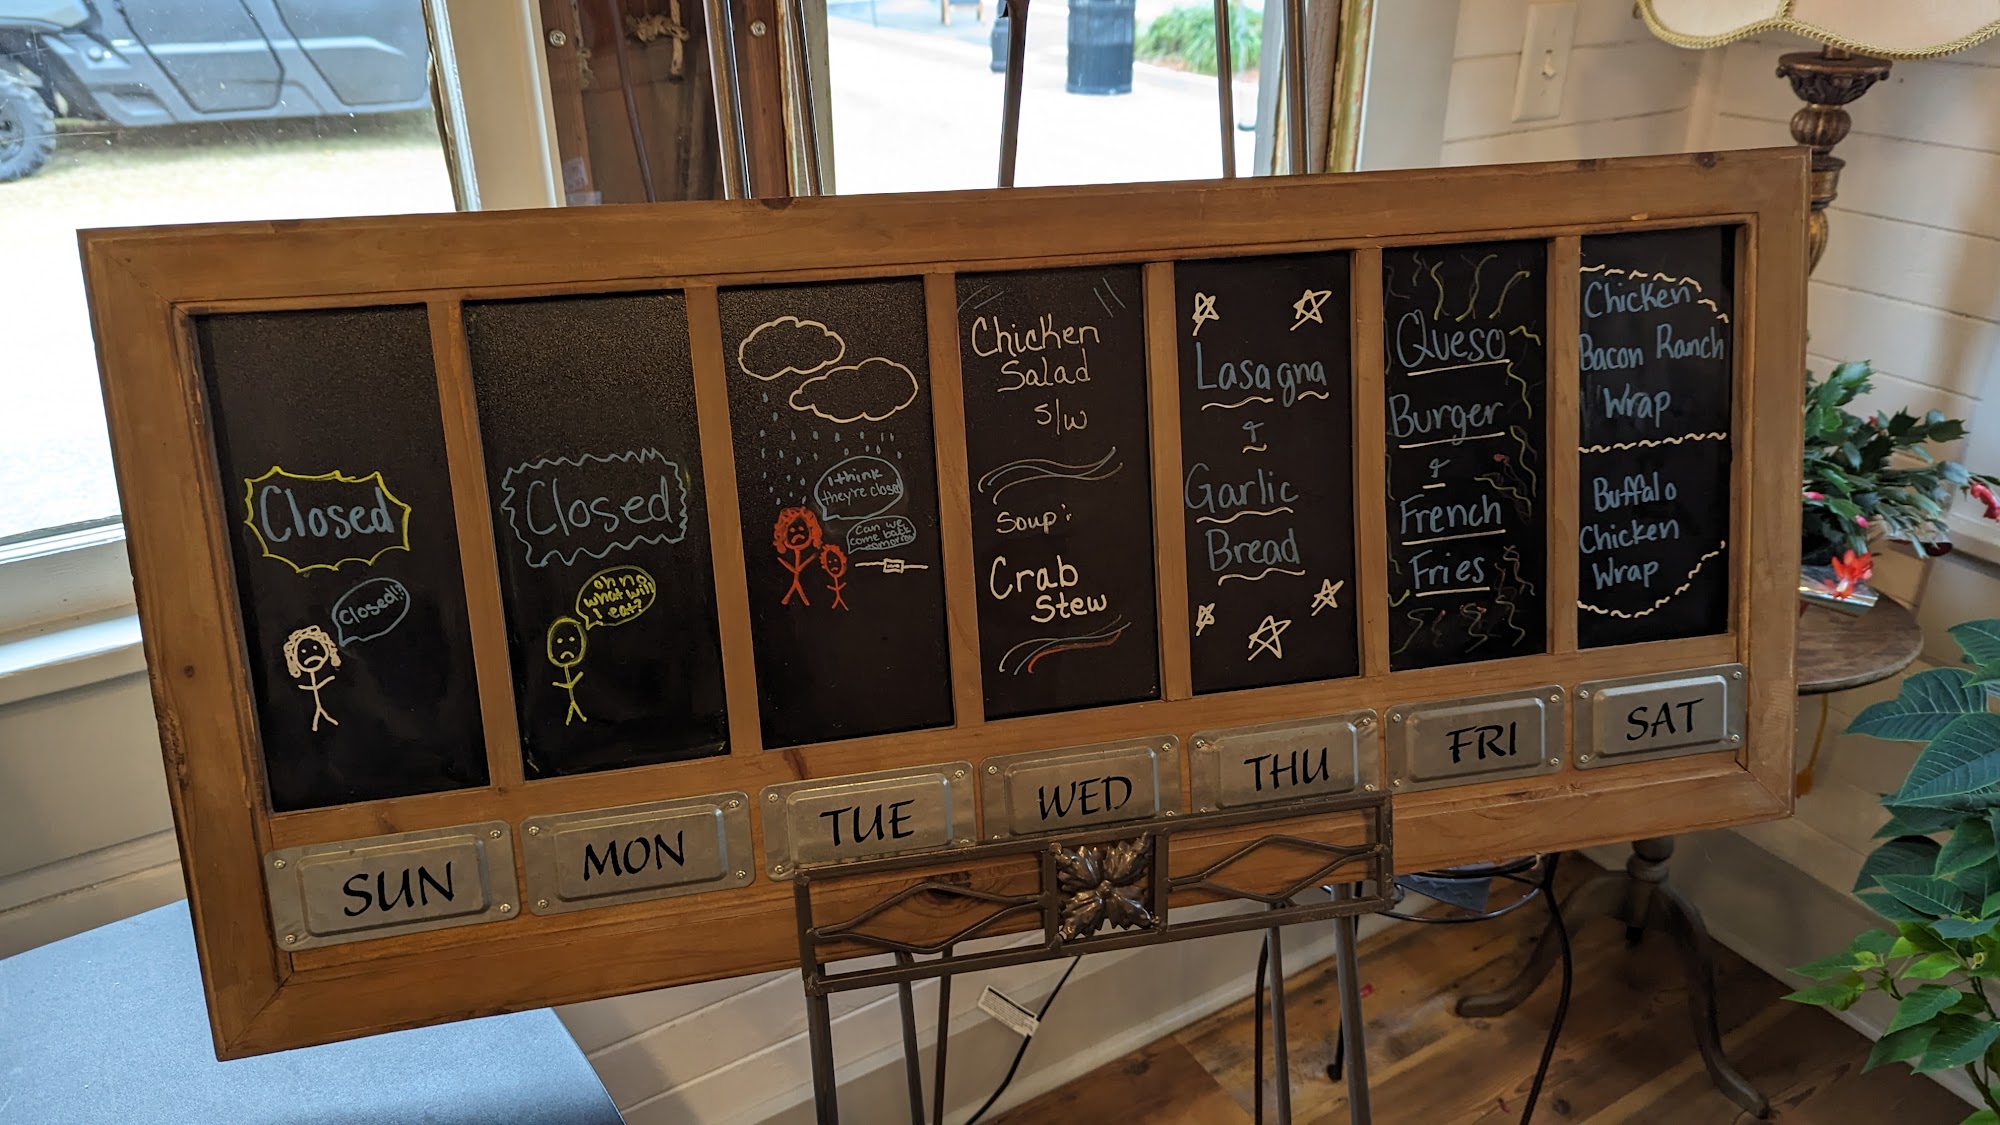 Closed
Closed!!
SUN
Closed
oh no
what will
I eat?
MON
I think
they're closed
can we
come back
tomorrow
TUE
Chicken
Salad
s/w
Soup:
Crab
Stew
WED
Lasagna
&
Garlic
Bread
THU
Queso
Burger
&
French
Fries
FRI
Chicken
Bacon Ranch
Wrap
Buffalo
Chicken
Wrap
SAT